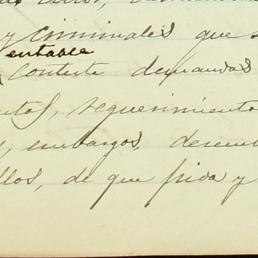 y criminales que s
entable
conteste demandas
utos, requerimiento
s, embargos, desem
llos, de que pida y